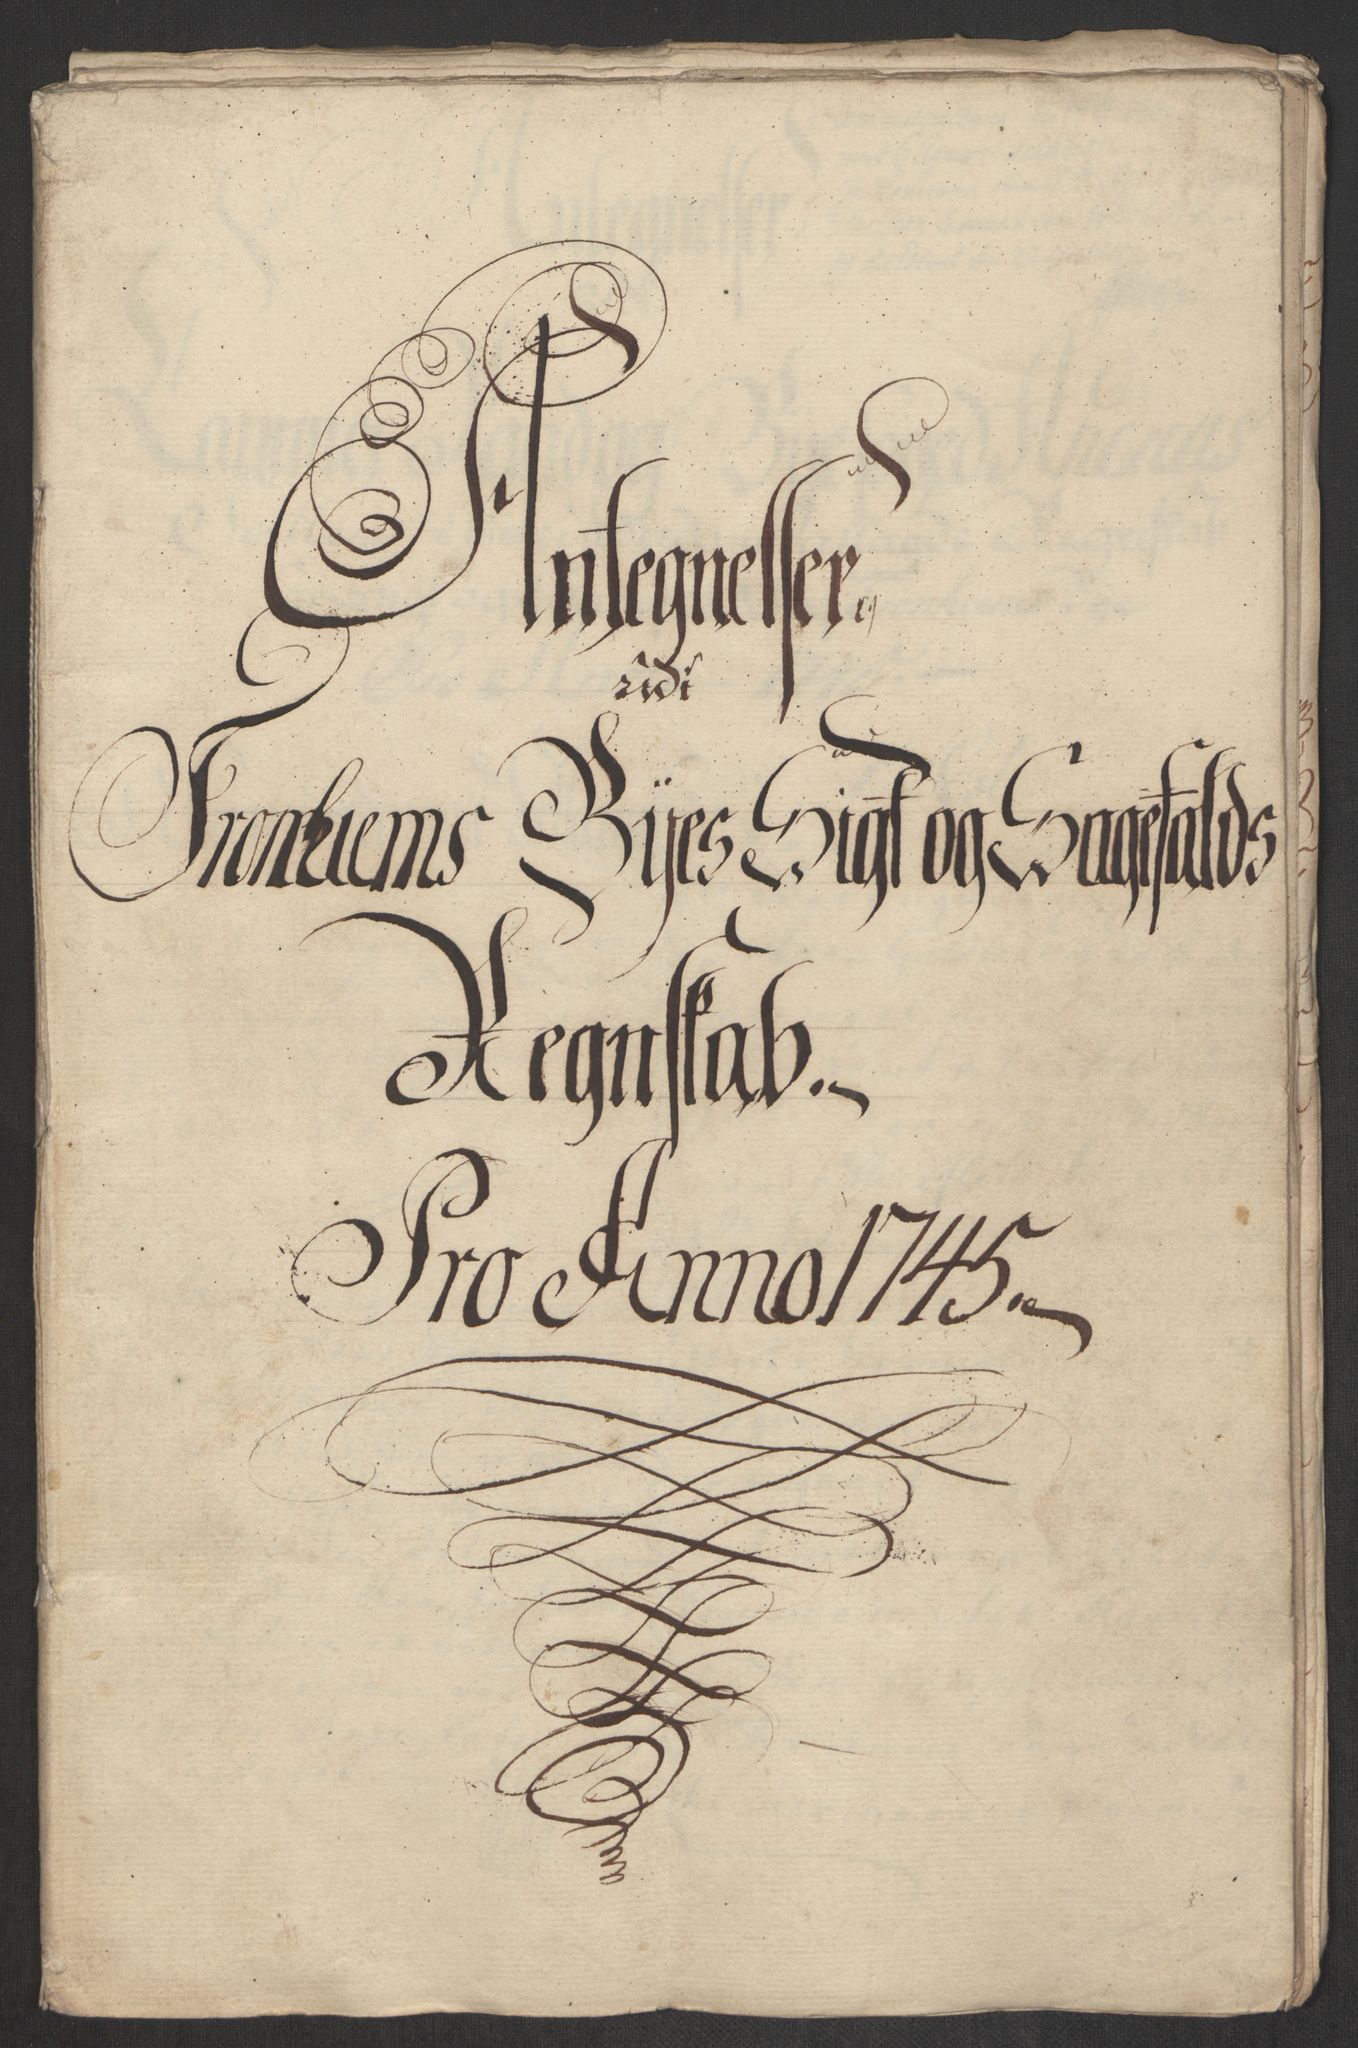 Antegnelser
udi
Tronhiems Byes Sigt og Sagefalds
Regnskab.
Pro Anno 1745.